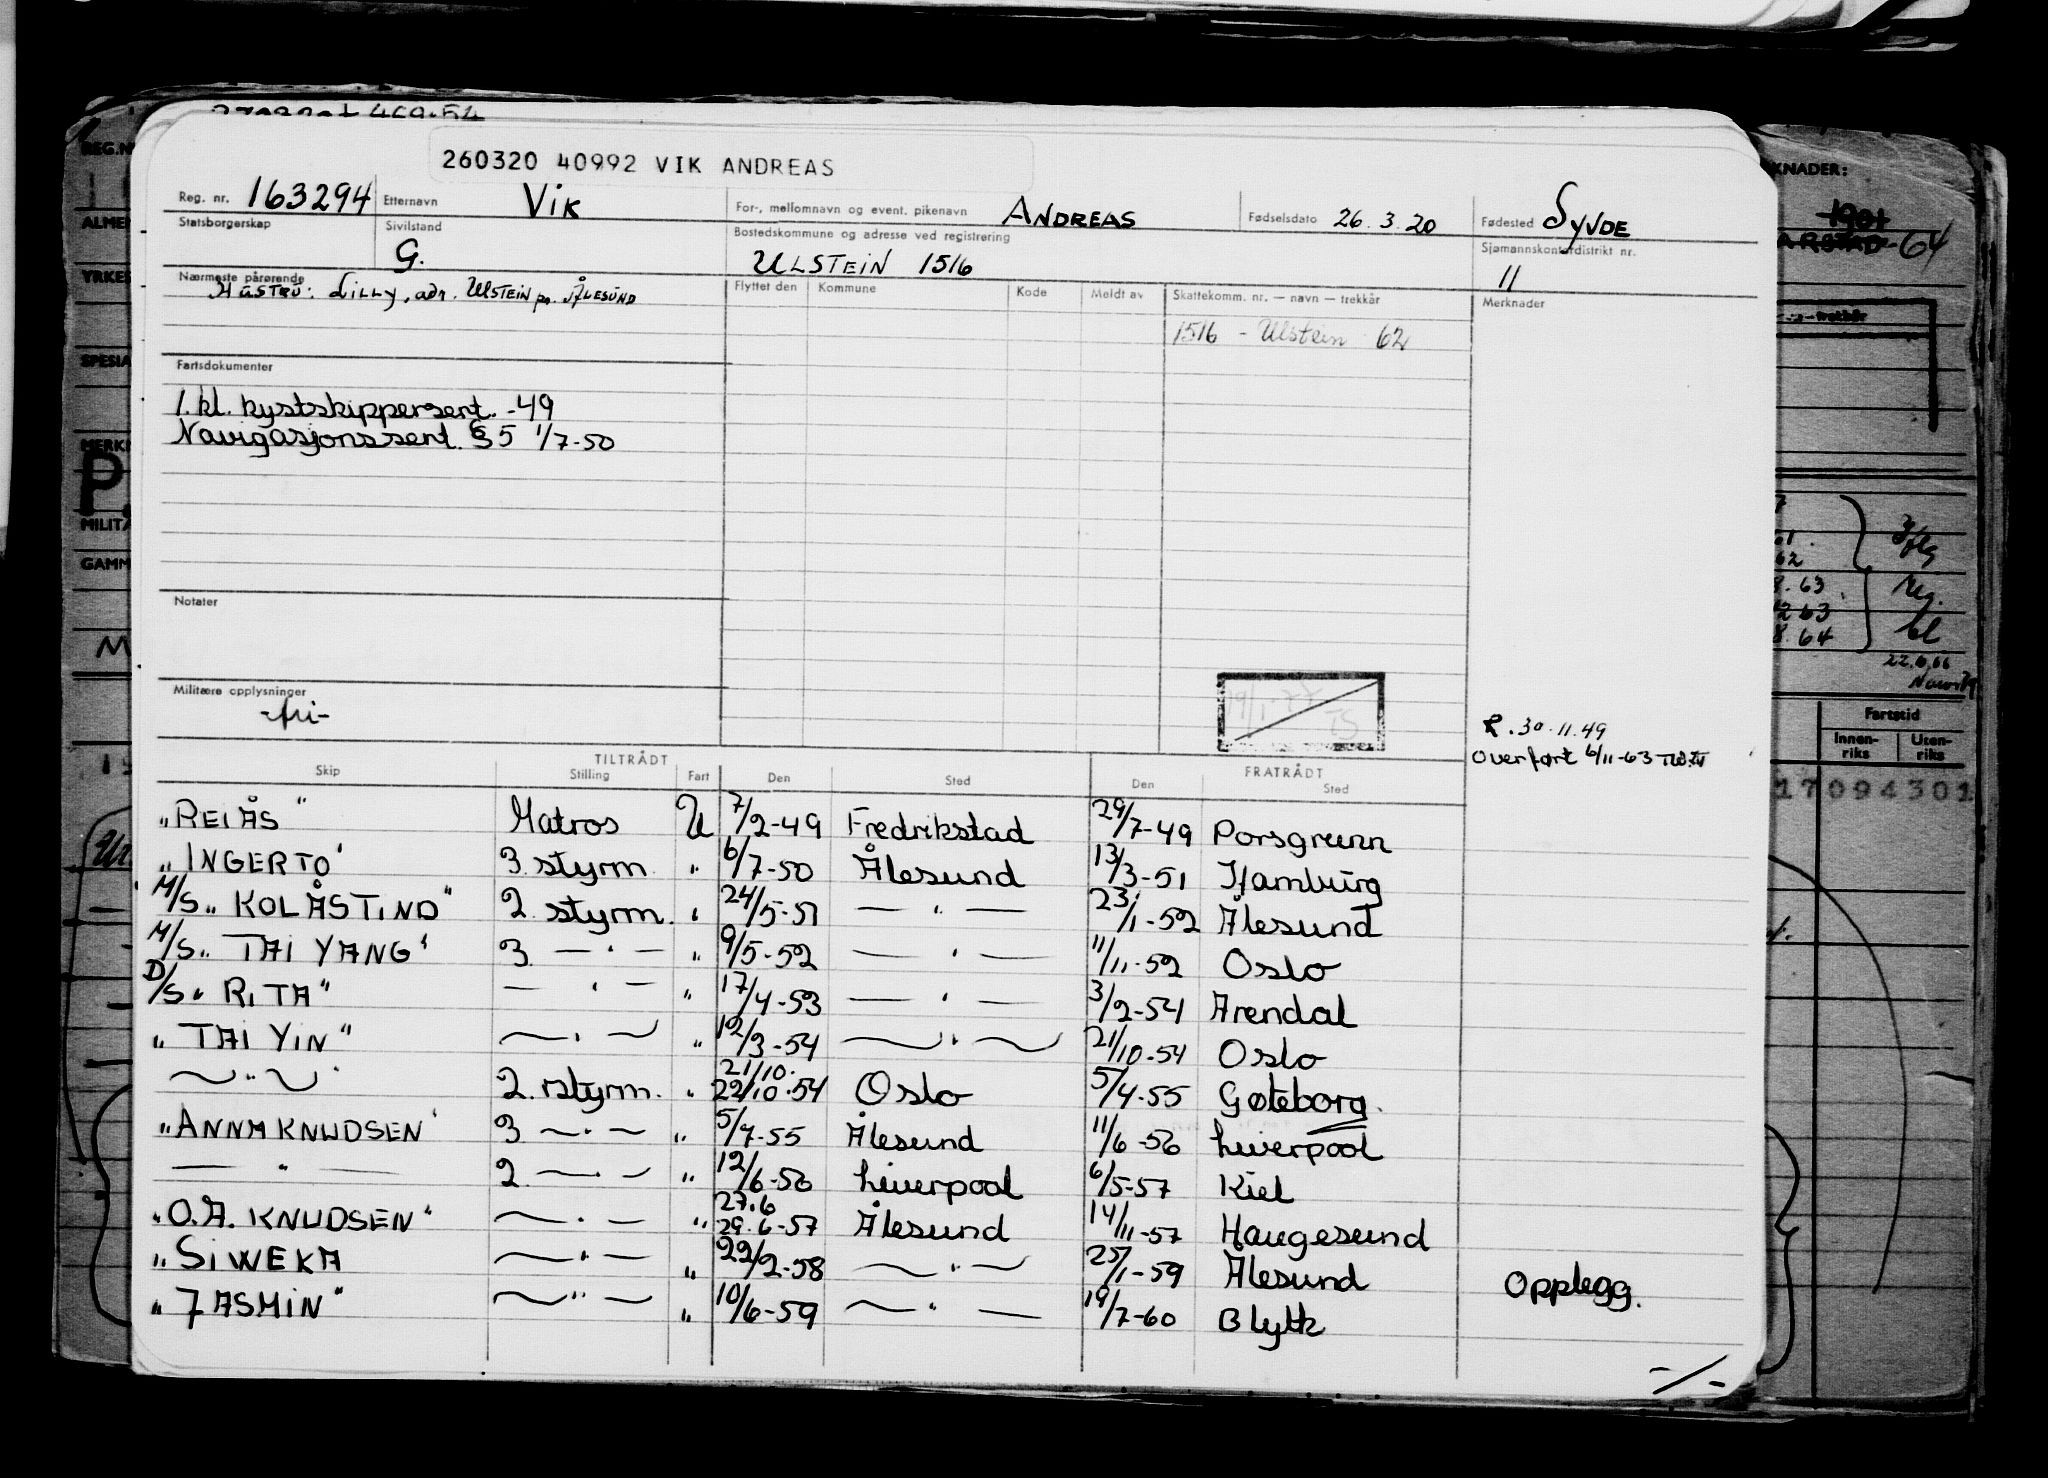 260320 40992 VIK ANDREAS
Reg. nr. 163294 Etternavn Vik For-, mellomnavn og event. pikenavn ANDREAS Fødselsdato 26.3.20 Fødested SYVDE
Statsborgerskap Sivilstand G. Bostedskommune og adresse ved registrering ULSTEIN 1516 Sjømannskontordistrikt nr. 11
Nærmeste pårørende Flyttet den Kommune Kode Meldt av Skattekomm. nr. — navn — trekkår Merknader
HUSTRU: LILLY, adr. ULSTEIN pr. ÅLESUND
1516 - Ulstein 62
Fartsdokumenter
1. kl. kystskippersert. -49
Navigasjonssert. §5 1/7-50
Notater
Militære opplysninger
-fri-
R. 30.11.49
Overført 6/11-63
TILTRÅDT FRATRÅDT
Skip Stilling Fart Den Sted Den Sted
"REIÅS" Matros U 7/2-49 Fredrikstad 29/7-49 Porsgrunn
"INGERTO" 3. styrm. " 6/7-50 Ålesund 13/3-51 Hamburg
M/S "KOLÅSTIND" 2. styrm. " 24/5-51 — " — 23/1-52 Ålesund
M/S "TAI YANG" 3. — " — " 9/5-52 — " — 11/11-52 Oslo
D/S "RITA" — " — " 17/4-53 — " — 3/2-54 Arendal
"TAI YIN" — " — " 12/3-54 — " — 21/10-54 Oslo
— " — 2. styrm. " 21/10. 22/10-54 Oslo 5/4-55 Gøteborg.
"ANNA KNUDSEN" 3 — " — " 5/7-55 Ålesund 11/6-56 Liverpool
— " — 2 — " — " 12/6-56 Liverpool 6/5-57 Kiel
"O.A. KNUDSEN" — " — " 27.6 29.6-57 Ålesund 14/11-57 Haugesund
"SIWEKA — " — " 22/2-58 — " — 25/1-59 Ålesund Opplegg.
"JASMIN" — " — " 10/6-59 — " — 19/7-60 Blyth
-/-
KNADER:
64
61.
62
22.6.66
Fartstid
Innen-riks Uten-riks
17094301